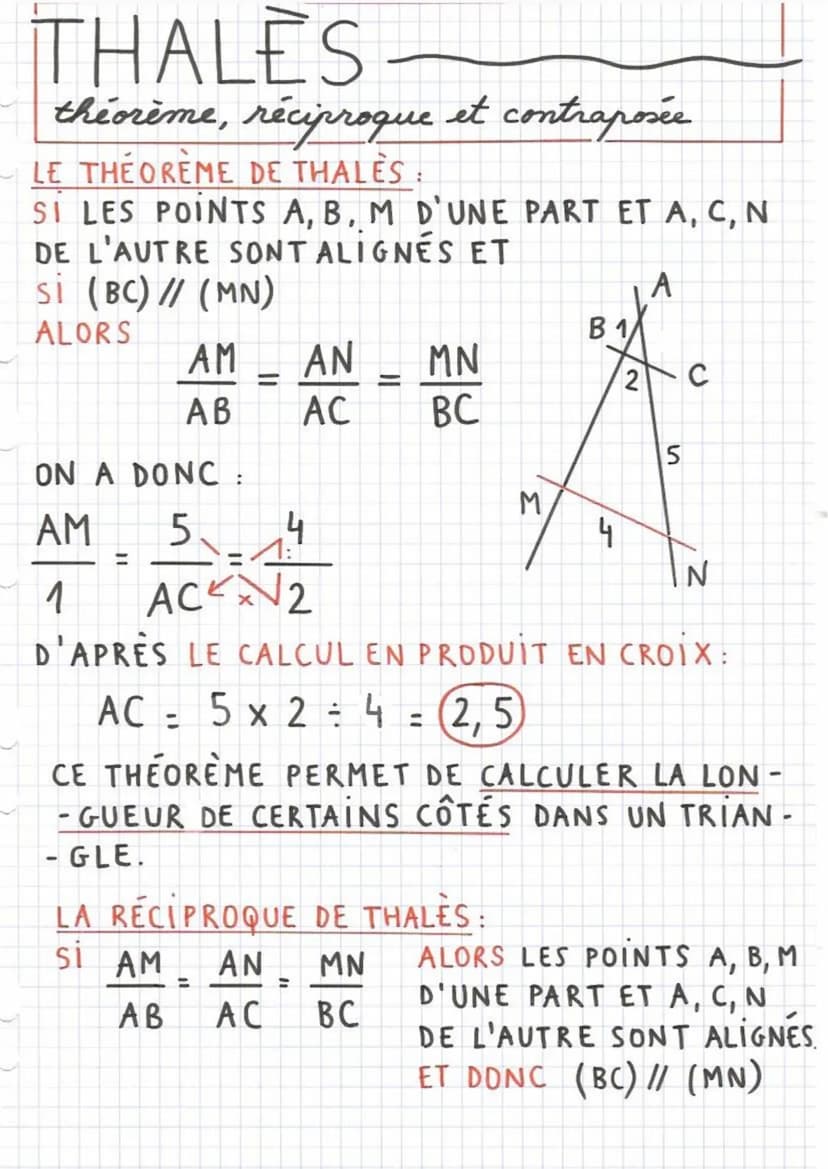 THALÈS
théorème, réciproque et contraposée
LE THÉORÈME DE THALÈS :
SI LES POINTS A, B, M D'UNE PART ET A, C, N
DE L'AUTRE SONT ALIGNÉS ET
SI (BC) // (MN)
ALORS
AM/AB = AN/AC = MN/BC
A
B 1
2 C
5
M
4
N
ON A DONC :
AM/1 = 5/AC = 4/2
: x
D'APRÈS LE CALCUL EN PRODUIT EN CROIX :
AC = 5 x 2 ÷ 4 = 2,5
CE THÉORÈME PERMET DE CALCULER LA LON-
-GUEUR DE CERTAINS CÔTÉS DANS UN TRIAN-
-GLE.
LA RÉCIPROQUE DE THALÈS :
SI AM/AB = AN/AC = MN/BC
ALORS LES POINTS A, B, M
D'UNE PART ET A, C, N
DE L'AUTRE SONT ALIGNÉS.
ET DONC (BC) // (MN)